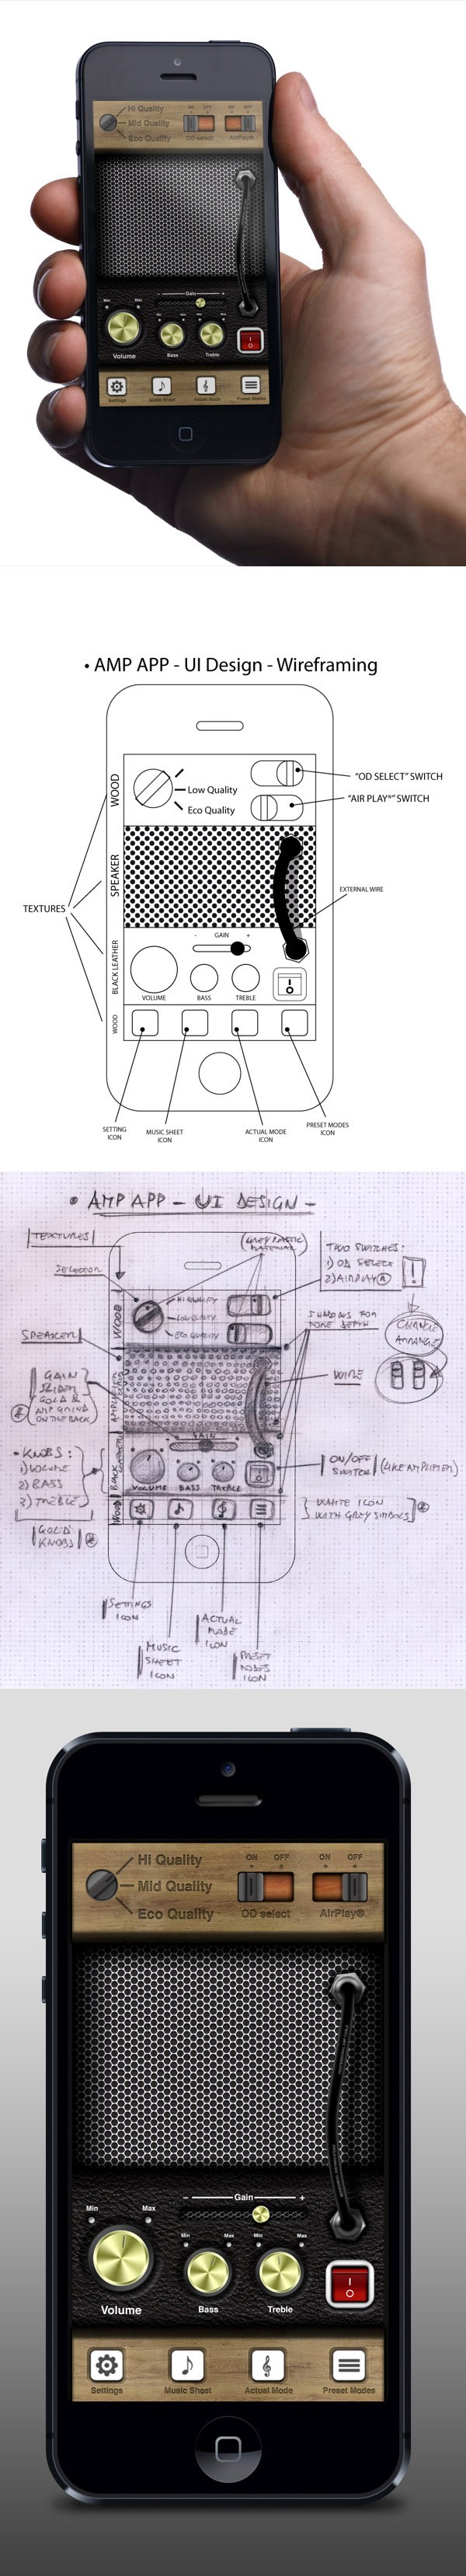 Hi Quality
Mid Quality
Eco Quality
ON OFF
ON OFF
OD select
AirPlay®
Gain
- +
Min Max
Min Max
Min Max
Volume
Bass
Treble
Settings
Music Sheet
Actual Mode
Preset Modes
• AMP APP - UI Design - Wireframing
WOOD
Low Quality
Eco Quality
"OD SELECT" SWITCH
"AIR PLAY®" SWITCH
SPEAKER
TEXTURES
EXTERNAL WIRE
BLACK LEATHER
- GAIN +
VOLUME
BASS
TREBLE
I
O
WOOD
SETTING
ICON
MUSIC SHEET
ICON
ACTUAL MODE
ICON
PRESET MODES
ICON
• AMP APP - UI DESIGN -
TEXTURES
GREY PLASTIC
MATERIAL
TWO SWITCHES:
1) OD SELECT
2) AIRPLAY®
SELECTOR
WOOD
HI QUALITY
LOW QUALITY
ECO QUALITY
SHADOWS FOR
MORE DEPTH
CHANGE
ARRANGE
SPEAKER
WIRE
GAIN
SLIDER
GOLD &
AMP GRIND
ON THE BACK
GAIN
• KNOBS:
1) VOLUME
2) BASS
3) TREBLE
GOLD
KNOBS
BLACK
VOLUME
BASS
TREBLE
ON/OFF
SWITCH (LIKE AMPLIFIER)
WOOD
WHITE ICON
WITH GREY SIMBOLS
SETTINGS
ICON
MUSIC
SHEET
ICON
ACTUAL
MODE
ICON
PRESET
MODES
ICON
Hi Quality
Mid Quality
Eco Quality
ON OFF
ON OFF
OD select
AirPlay®
- Gain +
Min Max
Min Max
Min Max
Volume
Bass
Treble
I
O
Settings
Music Sheet
Actual Mode
Preset Modes